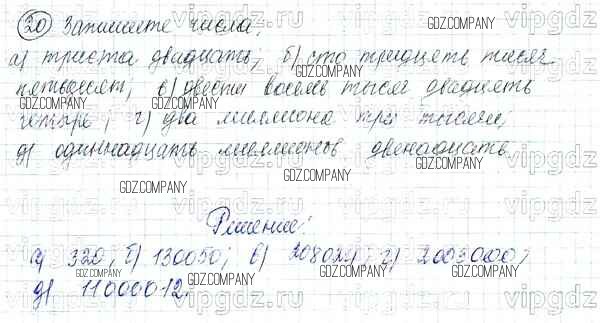 20 Запишите числа:
а) триста двадцать; б) сто тридцать тысяч
пятьдесят; в) двести восемь тысяч двадцать
четыре; г) два миллиона три тысячи;
д) одиннадцать миллионов двенадцать
Решение:
а) 320; б) 130050; в) 208024; г) 2003000;
д) 11000012.
vipgdz.ru
GDZ.COMPANY